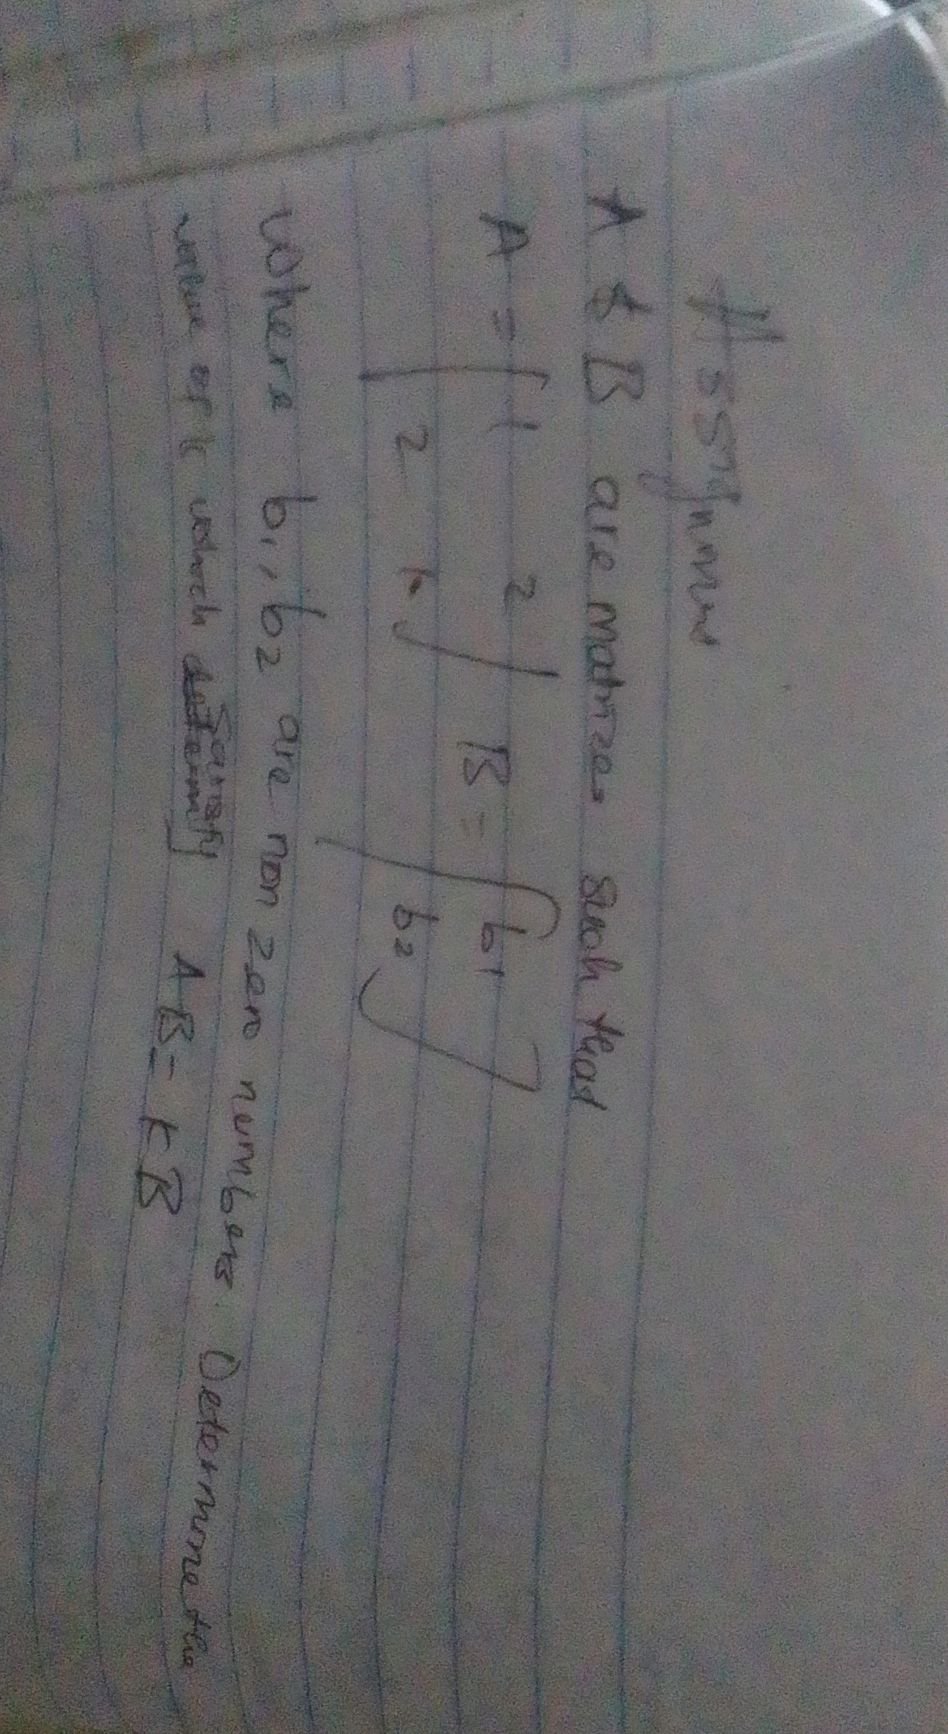 Assignment
A & B are matrices such that
A = [1 2
2 1] B = [b1
b2]
Where b1, b2 are non zero numbers. Determine the
value of k which satisfy AB = kB